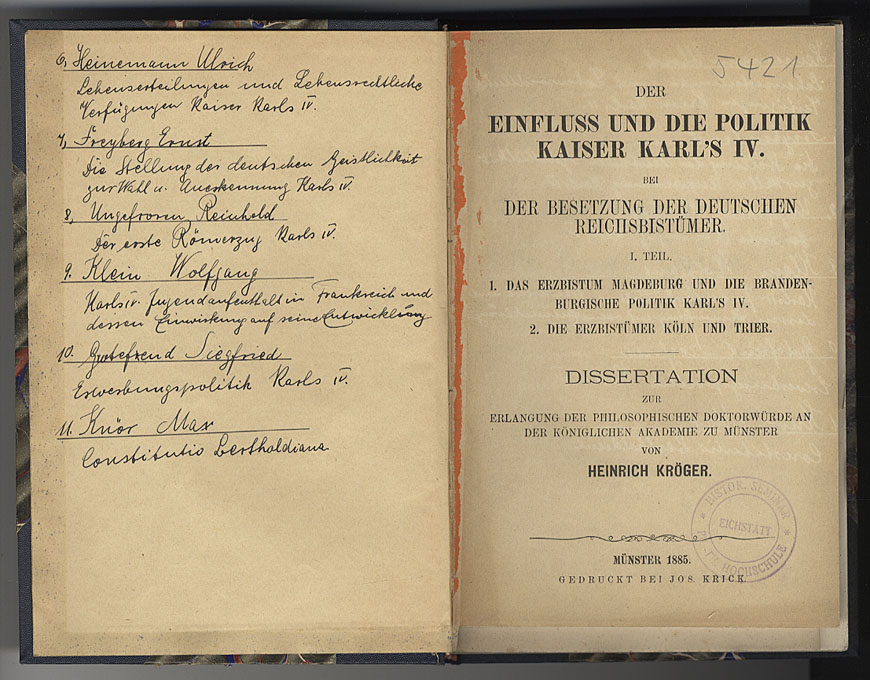 6, Heinemann Ulrich
Lehenserteilungen und Lehensrechtliche
Verfügungen Kaiser Karls IV.
7, Freyberg Ernst
Die Stellung der deutschen Geistlichkeit
zur Wahl u. Anerkennung Karls IV.
8, Ungefroren Reinhold
Der erste Römerzug Karls IV.
9. Klein Wolfgang
Karls IV. Jugendaufenthalt in Frankreich und
dessen Einwirkung auf seine Entwicklung
10. Grotefend Siegfried
Erwerbungspolitik Karls IV.
11. Knör Max
Constitutio Bertholdiana
5421
DER
EINFLUSS UND DIE POLITIK
KAISER KARL'S IV.
BEI
DER BESETZUNG DER DEUTSCHEN
REICHSBISTÜMER.
I. TEIL.
1. DAS ERZBISTUM MAGDEBURG UND DIE BRANDEN-
BURGISCHE POLITIK KARL'S IV.
2. DIE ERZBISTÜMER KÖLN UND TRIER.
DISSERTATION
ZUR
ERLANGUNG DER PHILOSOPHISCHEN DOKTORWÜRDE AN
DER KÖNIGLICHEN AKADEMIE ZU MÜNSTER
VON
HEINRICH KRÖGER.
HISTOR. SEMINAR
EICHSTÄTT
HOCHSCHULE
MÜNSTER 1885.
GEDRUCKT BEI JOS. KRICK.